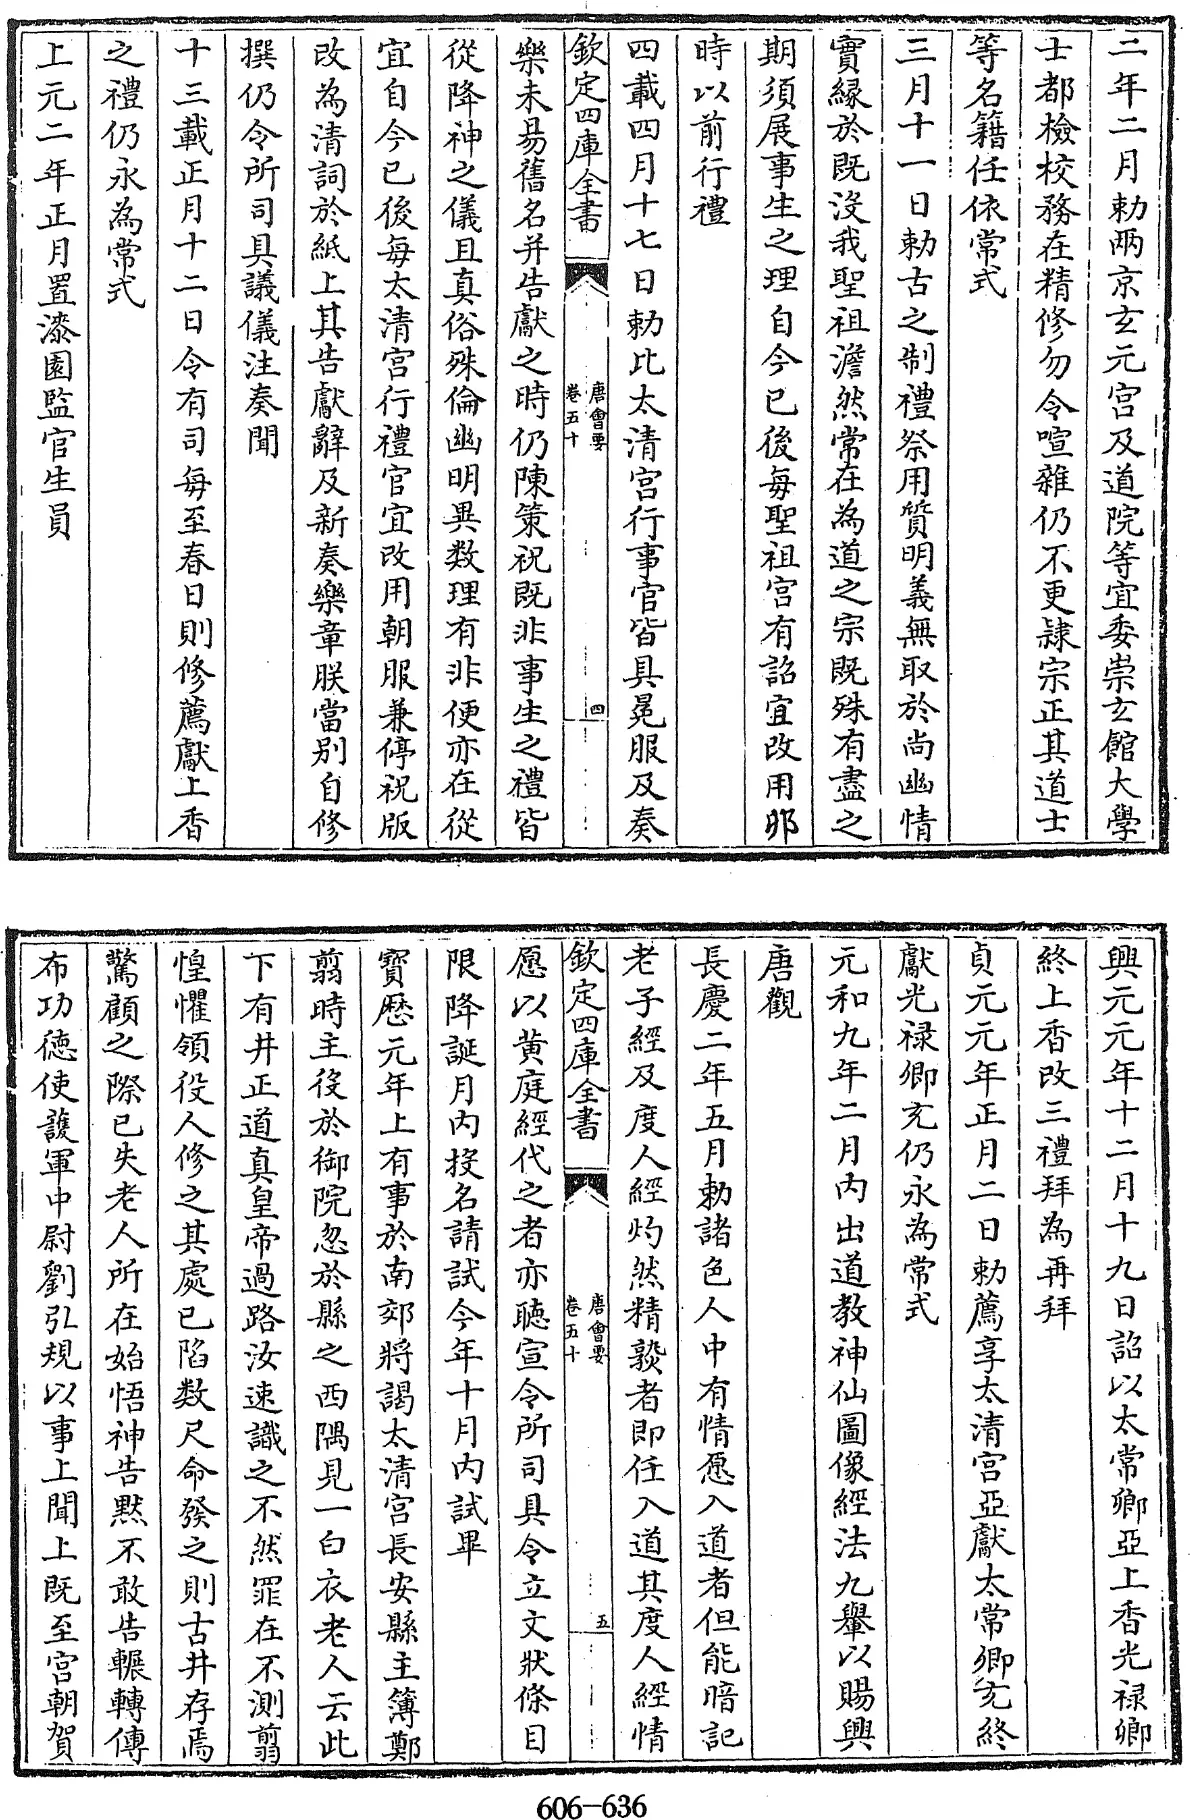 二年二月勅兩京玄元宫及道院等宜委崇玄館大學
士都檢校務在精修勿令喧雜仍不更隸宗正其道士
等名籍任依常式
三月十一日勅古之制禮祭用質明義無取於尚幽情
實緣於既沒我聖祖澹然常在為道之宗既殊有盡之
期須展事生之理自今已後每聖祖宫有詔宜改用卯
時以前行禮
四載四月十七日勅比太清宫行事官皆具冕服及奏
欽定四庫全書
唐會要
卷五十
四
樂未易舊名并告獻之時仍陳策祝既非事生之禮皆
從降神之儀且真俗殊倫幽明異数理有非便亦在從
宜自今已後每太清宫行禮官宜改用朝服兼停祝版
改為清詞於紙上其告獻辭及新奏樂章朕當别自修
撰仍令所司具議儀注奏聞
十三載正月十二日令有司每至春日則修薦獻上香
之禮仍永為常式
上元二年正月置漆園監官生員
興元元年十二月十九日詔以太常卿亞上香光禄卿
終上香改三禮拜為再拜
貞元元年正月二日勅薦享太清宫亞獻太常卿充終
獻光禄卿充仍永為常式
元和九年二月内出道教神仙圖像經法九轝以賜興
唐觀
長慶二年五月勅諸色人中有情愿入道者但能暗記
老子經及度人經灼然精熟者即任入道其度人經情
欽定四庫全書
唐會要
卷五十
五
愿以黄庭經代之者亦聽宣令所司具令立文狀條目
限降誕月内投名請試今年十月内試畢
寳歷元年上有事於南郊將謁太清宫長安縣主簿鄭
翦時主役於御院忽於縣之西隅見一白衣老人云此
下有井正道真皇帝過路汝速識之不然罪在不測翦
惶懼領役人修之其處已陷数尺命發之則古井存焉
驚顧之際已失老人所在始悟神告黙不敢告輾轉傳
布功德使護軍中尉劉弘規以事上聞上既至宫朝賀
606-636